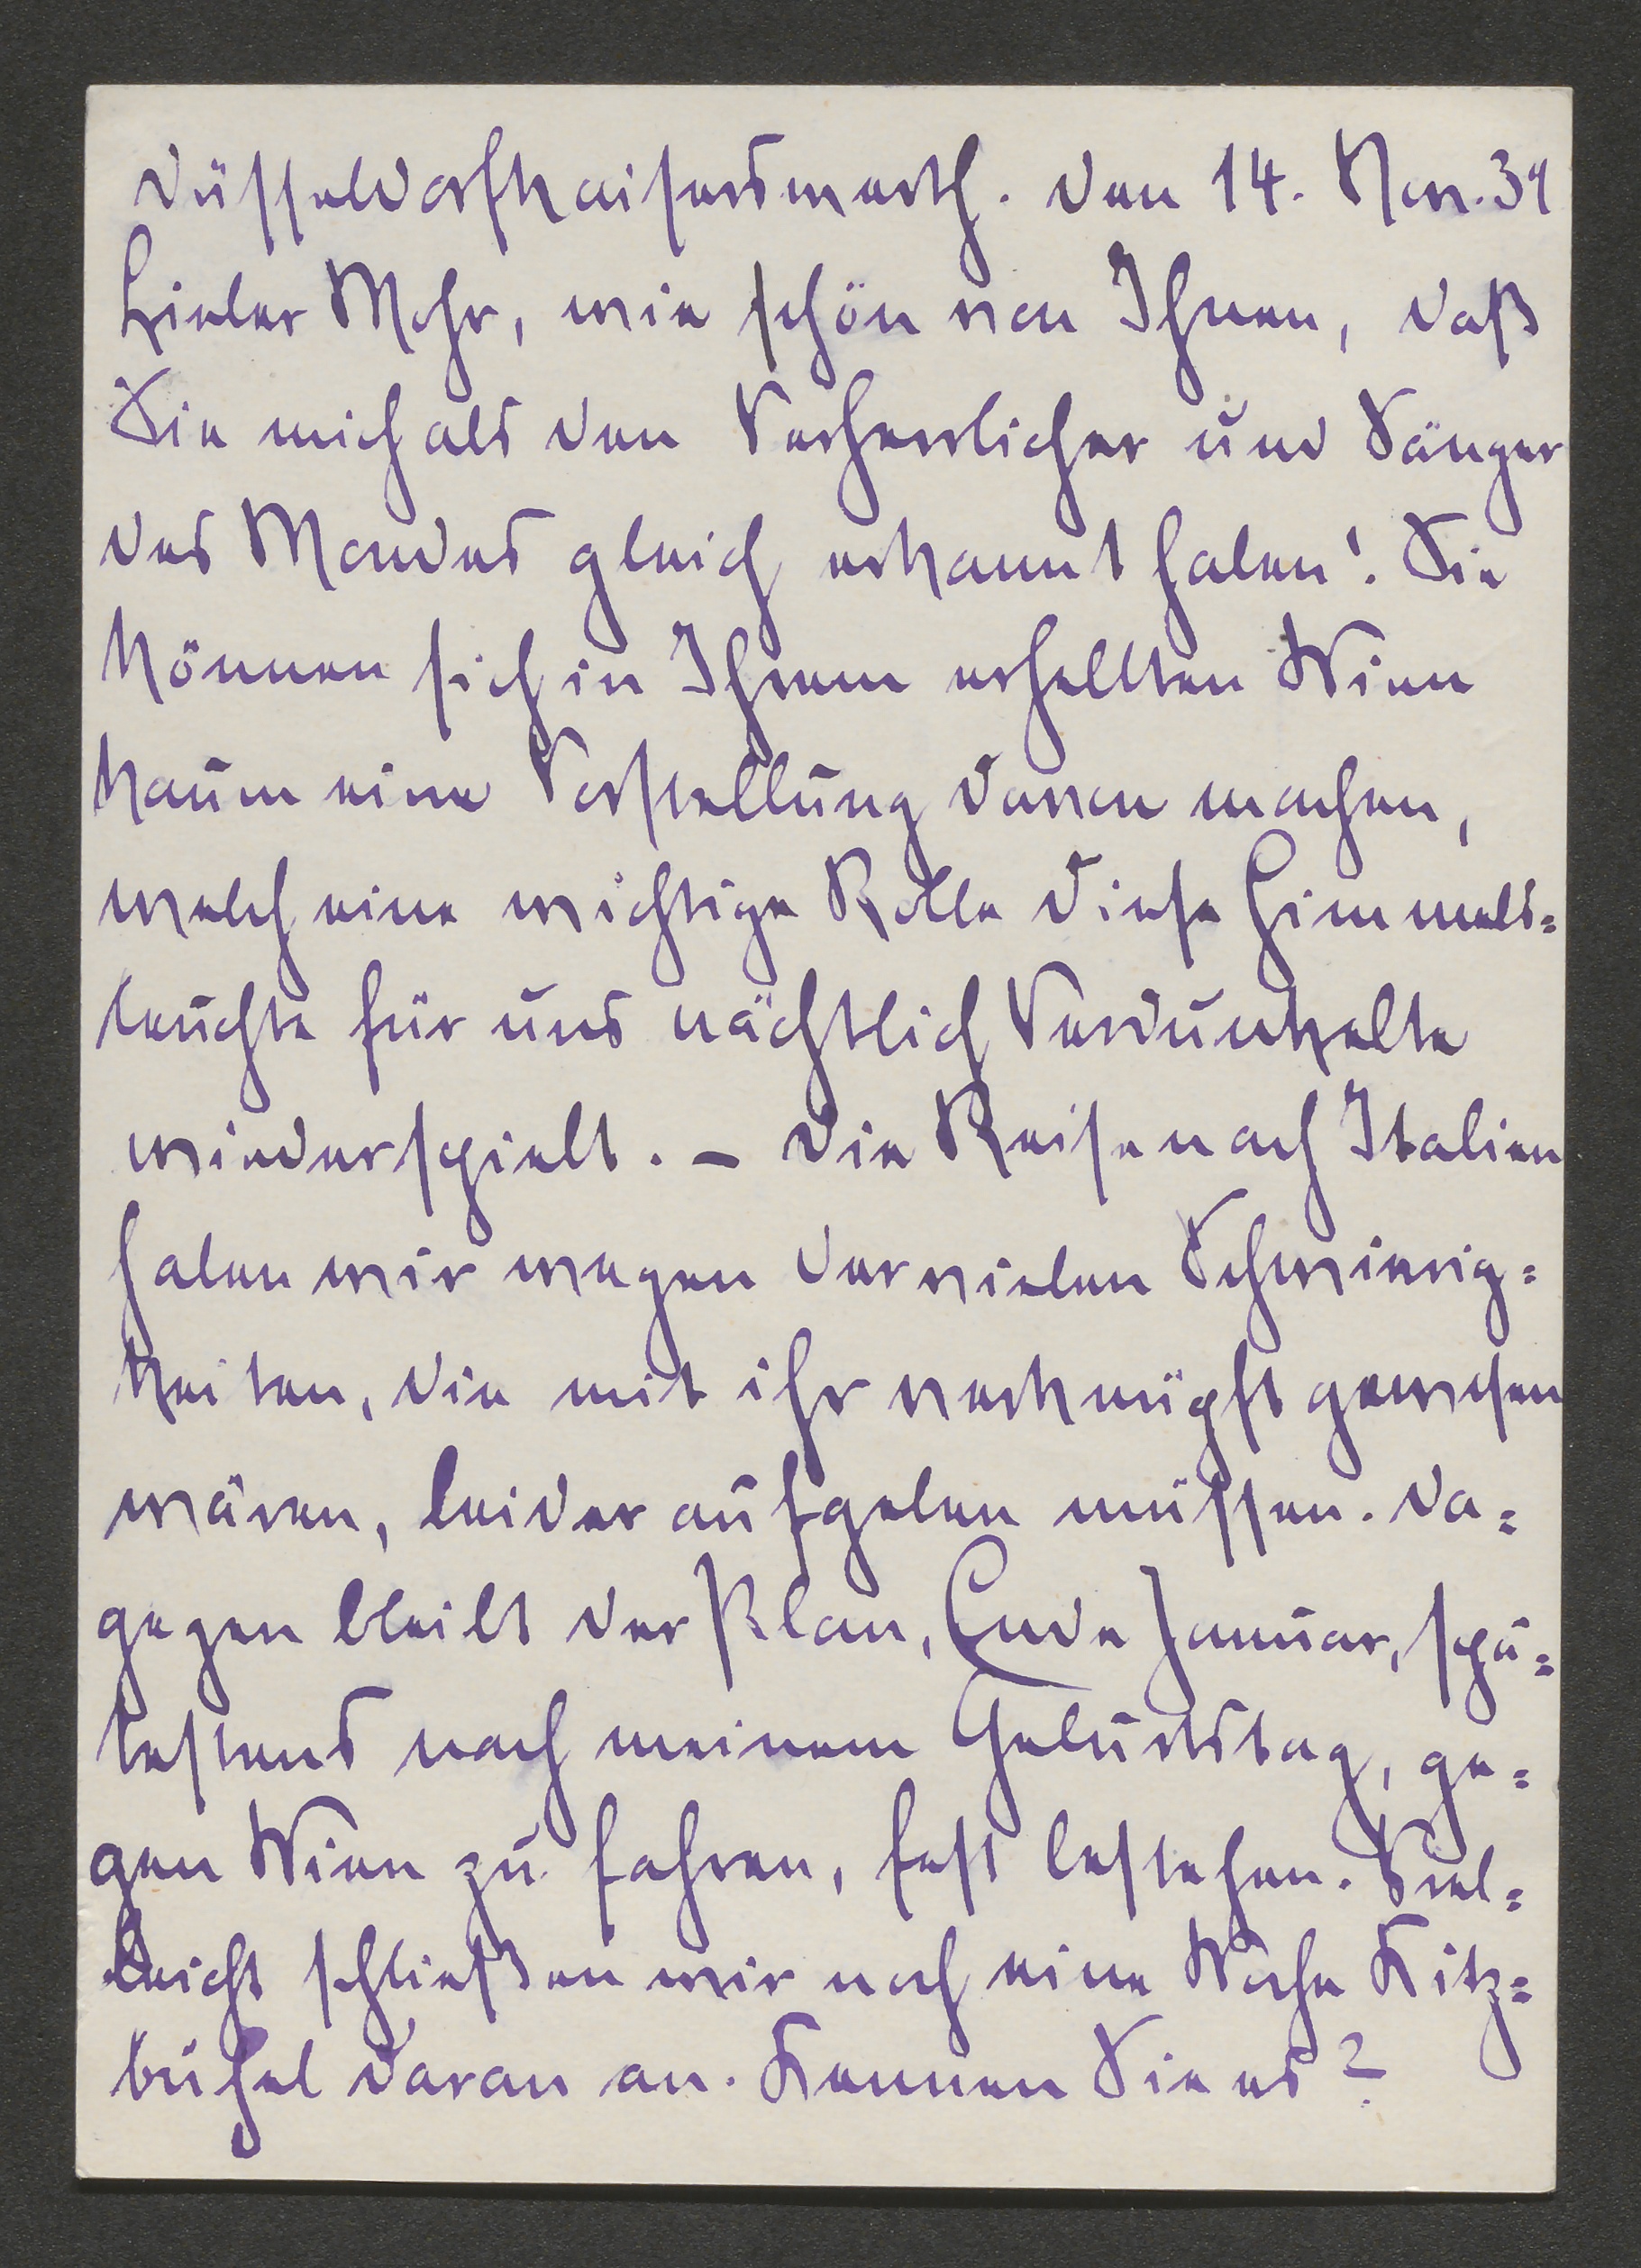 Düsseldorfkaiserswerth. den 14. Nov. 39
Lieber Mohr, wie schön von Ihnen, daß
Sie mich als den Verherrlicher und Sänger
des Mondes gleich erkannt haben! Sie
können sich in Ihrem erhellten Wien
kaum eine Vorstellung davon machen,
welch eine wichtige Rolle diese Himmels=
leuchte für uns nächtlich Verdunkelte
wiederspielt. – Die Reise nach Italien
haben wir wegen der vielen Schwierig=
keiten, die mit ihr verknüpft gewesen
wären, leider aufgeben müssen. Da=
gegen bleibt der Plan, Ende Januar, spä=
testens nach meinem Geburtstag, ge=
gen Wien zu fahren, fest bestehen. Viel=
leicht schließen wir noch eine Woche Kitz=
bühel daran an. Kennen Sie es?